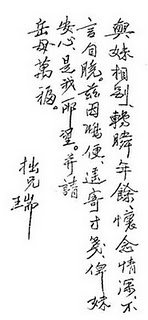 與妹相別、轉瞬年餘、懷念情深、不
言自曉。茲因鴻便、遙寄寸箋、俾妹
安心、是我所望。并請
岳母萬福。
拙兄
瑞